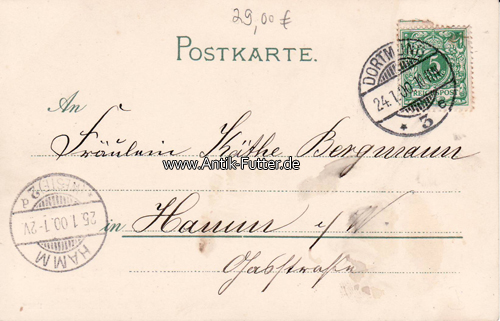 29,00 €
POSTKARTE.
DORTMUND
24.1.00.
* 3 e
5
REICHSPOST
An
Fräulein Käthe Bergmann
www.Antik-Futter.de
in Hamm i/W
Gasstraße
HAMM
25.1.00.1-2V